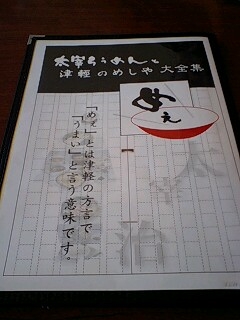 太宰らうめんと
津軽のめしや 大全集
めぇ
「めぇ」とは津軽の方言で
「うまい」と言う意味です。